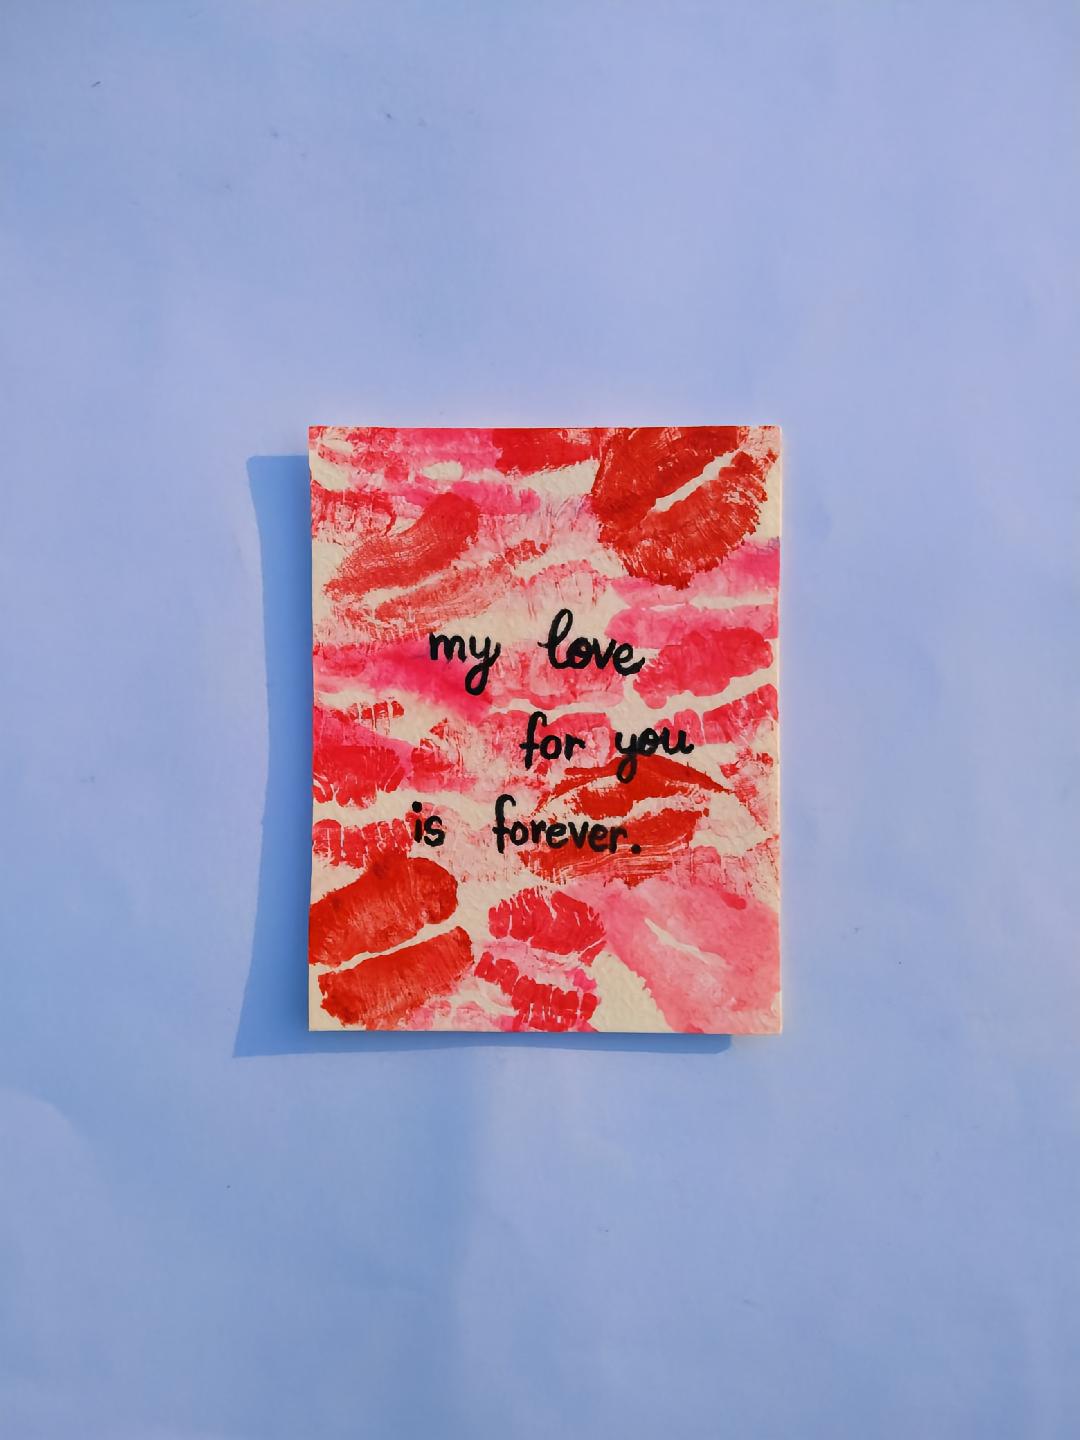 my love
for you
is forever.